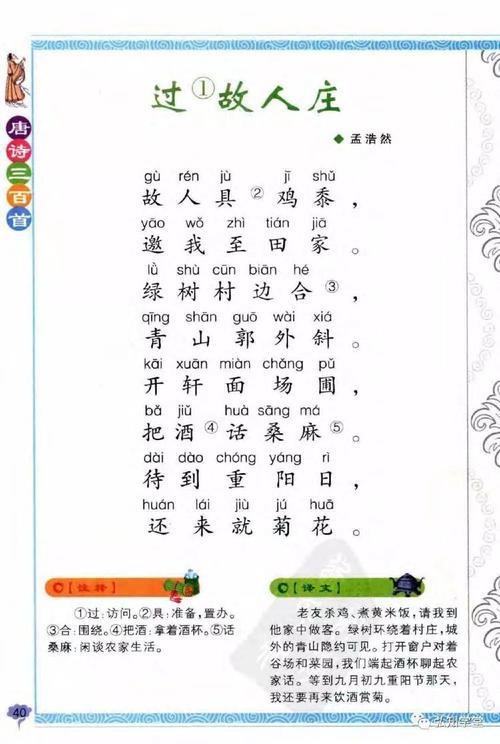 唐诗三百首
过①故人庄
◆ 孟浩然
gù rén jù jī shǔ
故人具②鸡黍，
yāo wǒ zhì tián jiā
邀我至田家。
lǜ shù cūn biān hé
绿树村边合③，
qīng shān guō wài xiá
青山郭外斜。
kāi xuān miàn chǎng pǔ
开轩面场圃，
bǎ jiǔ huà sāng má
把酒④话桑麻⑤。
dài dào chóng yáng rì
待到重阳日，
huán lái jiù jú huā
还来就菊花。
【注释】
①过：访问。②具：准备，置办。
③合：围绕。④把酒：拿着酒杯。⑤话
桑麻：闲谈农家生活。
【译文】
老友杀鸡、煮黄米饭，请我到
他家中做客。绿树环绕着村庄，城
外的青山隐约可见。打开窗户对着
谷场和菜园，我们端起酒杯聊起农
家话。等到九月初九重阳节那天，
我还要再来饮酒赏菊。
40
弘翔学堂